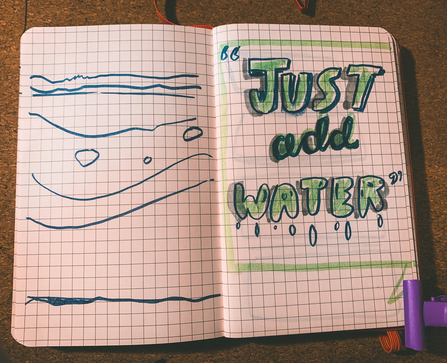 "JUST
add
WATER"